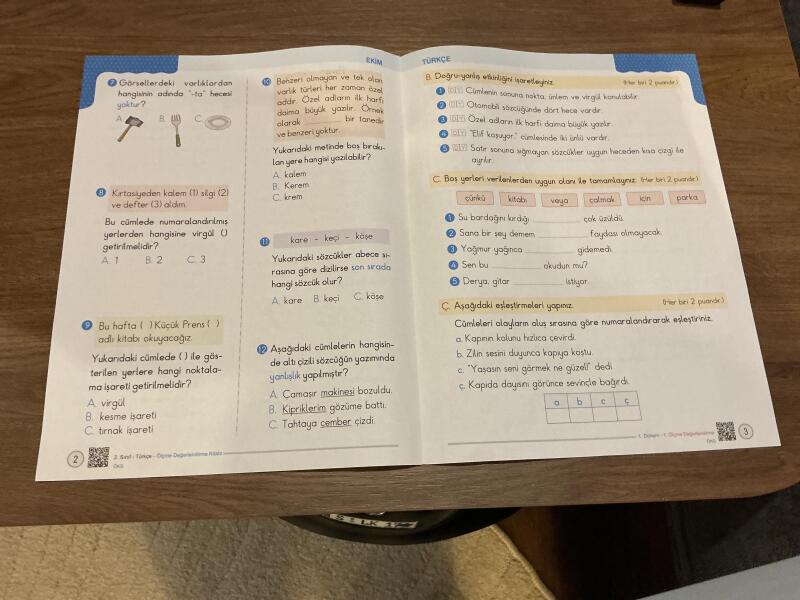 EKİM
7 Görsellerdeki varlıklardan
hangisinin adında "-ta" hecesi
yoktur?
A. B. C.
8 Kırtasiyeden kalem (1) silgi (2)
ve defter (3) aldım.
Bu cümlede numaralandırılmış
yerlerden hangisine virgül (,)
getirilmelidir?
A. 1 B. 2 C. 3
9 Bu hafta ( ) Küçük Prens ( )
adlı kitabı okuyacağız.
Yukarıdaki cümlede ( ) ile gös-
terilen yerlere hangi noktala-
ma işareti getirilmelidir?
A. virgül
B. kesme işareti
C. tırnak işareti
10 Benzeri olmayan ve tek olan
varlık türleri her zaman özel
addır. Özel adların ilk harfi
daima büyük yazılır. Örnek
olarak ________ bir tanedir
ve benzeri yoktur.
Yukarıdaki metinde boş bırakı-
lan yere hangisi yazılabilir?
A. kalem
B. Kerem
C. krem
11 kare - keçi - köşe
Yukarıdaki sözcükler abece sı-
rasına göre dizilirse son sırada
hangi sözcük olur?
A. kare B. keçi C. köşe
12 Aşağıdaki cümlelerin hangisin-
de altı çizili sözcüğün yazımında
yanlışlık yapılmıştır?
A. Çamaşır makinesi bozuldu.
B. Kipriklerim gözüme battı.
C. Tahtaya çember çizdi.
2
2. Sınıf - Türkçe - Ölçme Değerlendirme Kitabı
TÜRKÇE
B. Doğru-yanlış etkinliğini işaretleyiniz. (Her biri 2 puandır.)
1 D Y Cümlenin sonuna nokta, ünlem ve virgül konulabilir.
2 D Y Otomobil sözcüğünde dört hece vardır.
3 D Y Özel adların ilk harfi daima büyük yazılır.
4 D Y "Elif koşuyor." cümlesinde iki ünlü vardır.
5 D Y Satır sonuna sığmayan sözcükler uygun heceden kısa çizgi ile
ayrılır.
C. Boş yerleri verilenlerden uygun olanı ile tamamlayınız. (Her biri 2 puandır.)
çünkü kitabı veya çalmak için parka
1 Su bardağını kırdığı ________ çok üzüldü.
2 Sana bir şey demem ________ faydası olmayacak.
3 Yağmur yağınca ________ gidemedi.
4 Sen bu ________ okudun mu?
5 Derya, gitar ________ istiyor.
Ç. Aşağıdaki eşleştirmeleri yapınız. (Her biri 2 puandır.)
Cümleleri olayların oluş sırasına göre numaralandırarak eşleştiriniz.
a. Kapının kolunu hızlıca çevirdi.
b. Zilin sesini duyunca kapıya koştu.
c. "Yaşasın seni görmek ne güzel!" dedi.
ç. Kapıda dayısını görünce sevinçle bağırdı.
a b c ç
1. Dönem - 1. Ölçme Değerlendirme
3